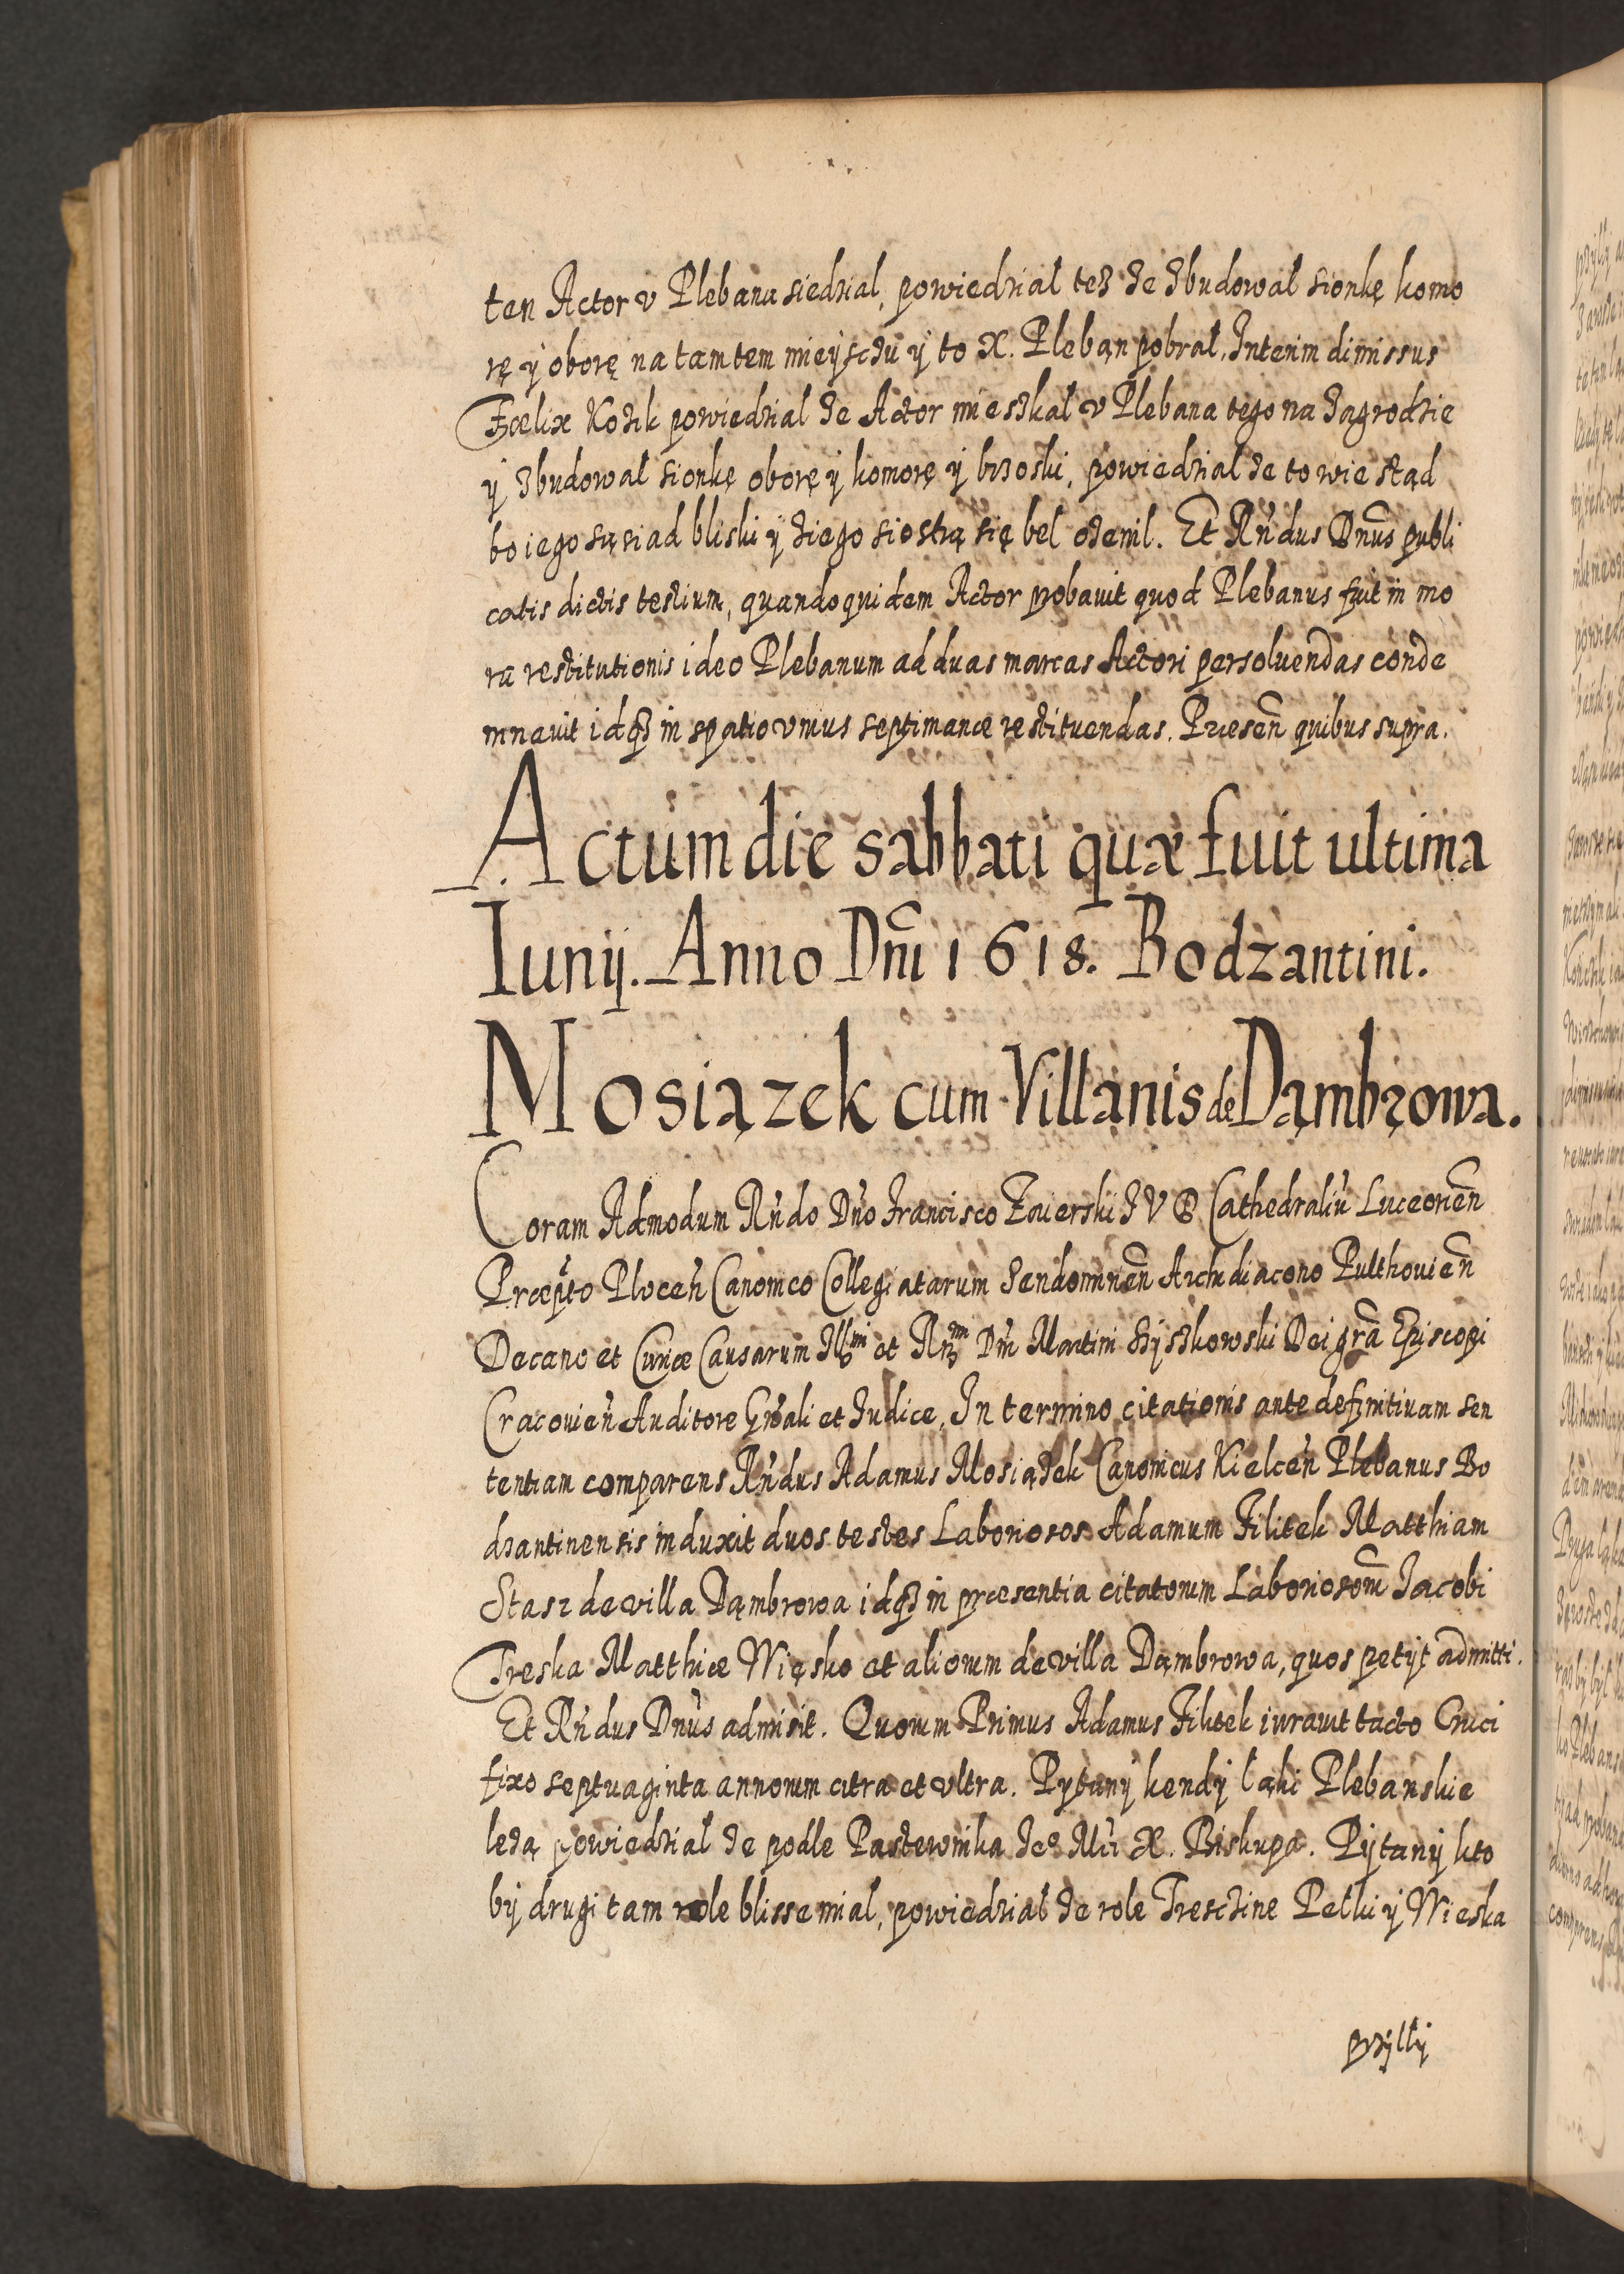 ten Actor v Plebana siedzial, powiedzial tez ze zbudowal sionkę komo
rę ÿ oborę na tamtem mieÿsczu ÿ to X. Pleban pobral. Interim dimissus
Fœlix Kozik powiedzial ze Actor mieszkal v Plebana tego na zagrodzie
ÿ zbudowal sionkę oborę ÿ komorę ÿ brzoski, powiedzial ze to wie stąd
bo iego sąsiad bliski ÿ ziego siostrą się bel ożenil. Et Rńdus Dnus publi
catis dictis testium, quandoquidem Actor probauit quod Plebanus fuit in mo
ra restitutionis ideo Plebanum ad duas marcas Actori persoluendas conde
mnauit idqȝ in spatio vnius septimanæ restituendas. Præsen̄ quibus supra.
Actum die sabbati quæ fuit ultima
Iunij. Anno Dn̄i 1618. Bodzantini.
Mosiązek cum Villanis de Dąmbrowa.
Coram Admodum Rńdo Dńo Francisco Zaierski I V D Cathedraliū Luceorien̄
Præpto Plocen̄ Canonico Collegiatarum Sendomirien̄ Archidiacono Pulthouien̄
Decano et Curiæ Causarum Illmi et Rmi Dn̄i Martini Szÿszkowski Dei gr̄a Episcopi
Cracouien̄ Auditore Gn̄ali et Iudice, In termino citationis ante definitiuam sen
tentiam comparens Rńdus Adamus Mosiązek Canonicus Kielcen̄ Plebanus Bo
dzantinensis induxit duos testes Laboriosos Adamum Filitek Matthiam
Stasz de villa Dąmbrowa idqȝ in præsentia citatorum Laboriosom̄ Iacobi
Treska Matthiæ Więsko et aliorum de villa Dąmbrowa, quos petijt admitti.
Et Rńdus Dnus admisit. Quorum Primus Adamus Filitek iurauit tacto Cruci
fixo septuaginta annorum citra et vltra. Pytanÿ kendÿ łąki Plebanskie
lezą powiedzial ze podle Pastewnika Jeo Mci X. Biskupa. Pÿtanÿ kto
bÿ drugi tam role blisse mial, powiedzial ze role Tresczine Pelki ÿ Wieska